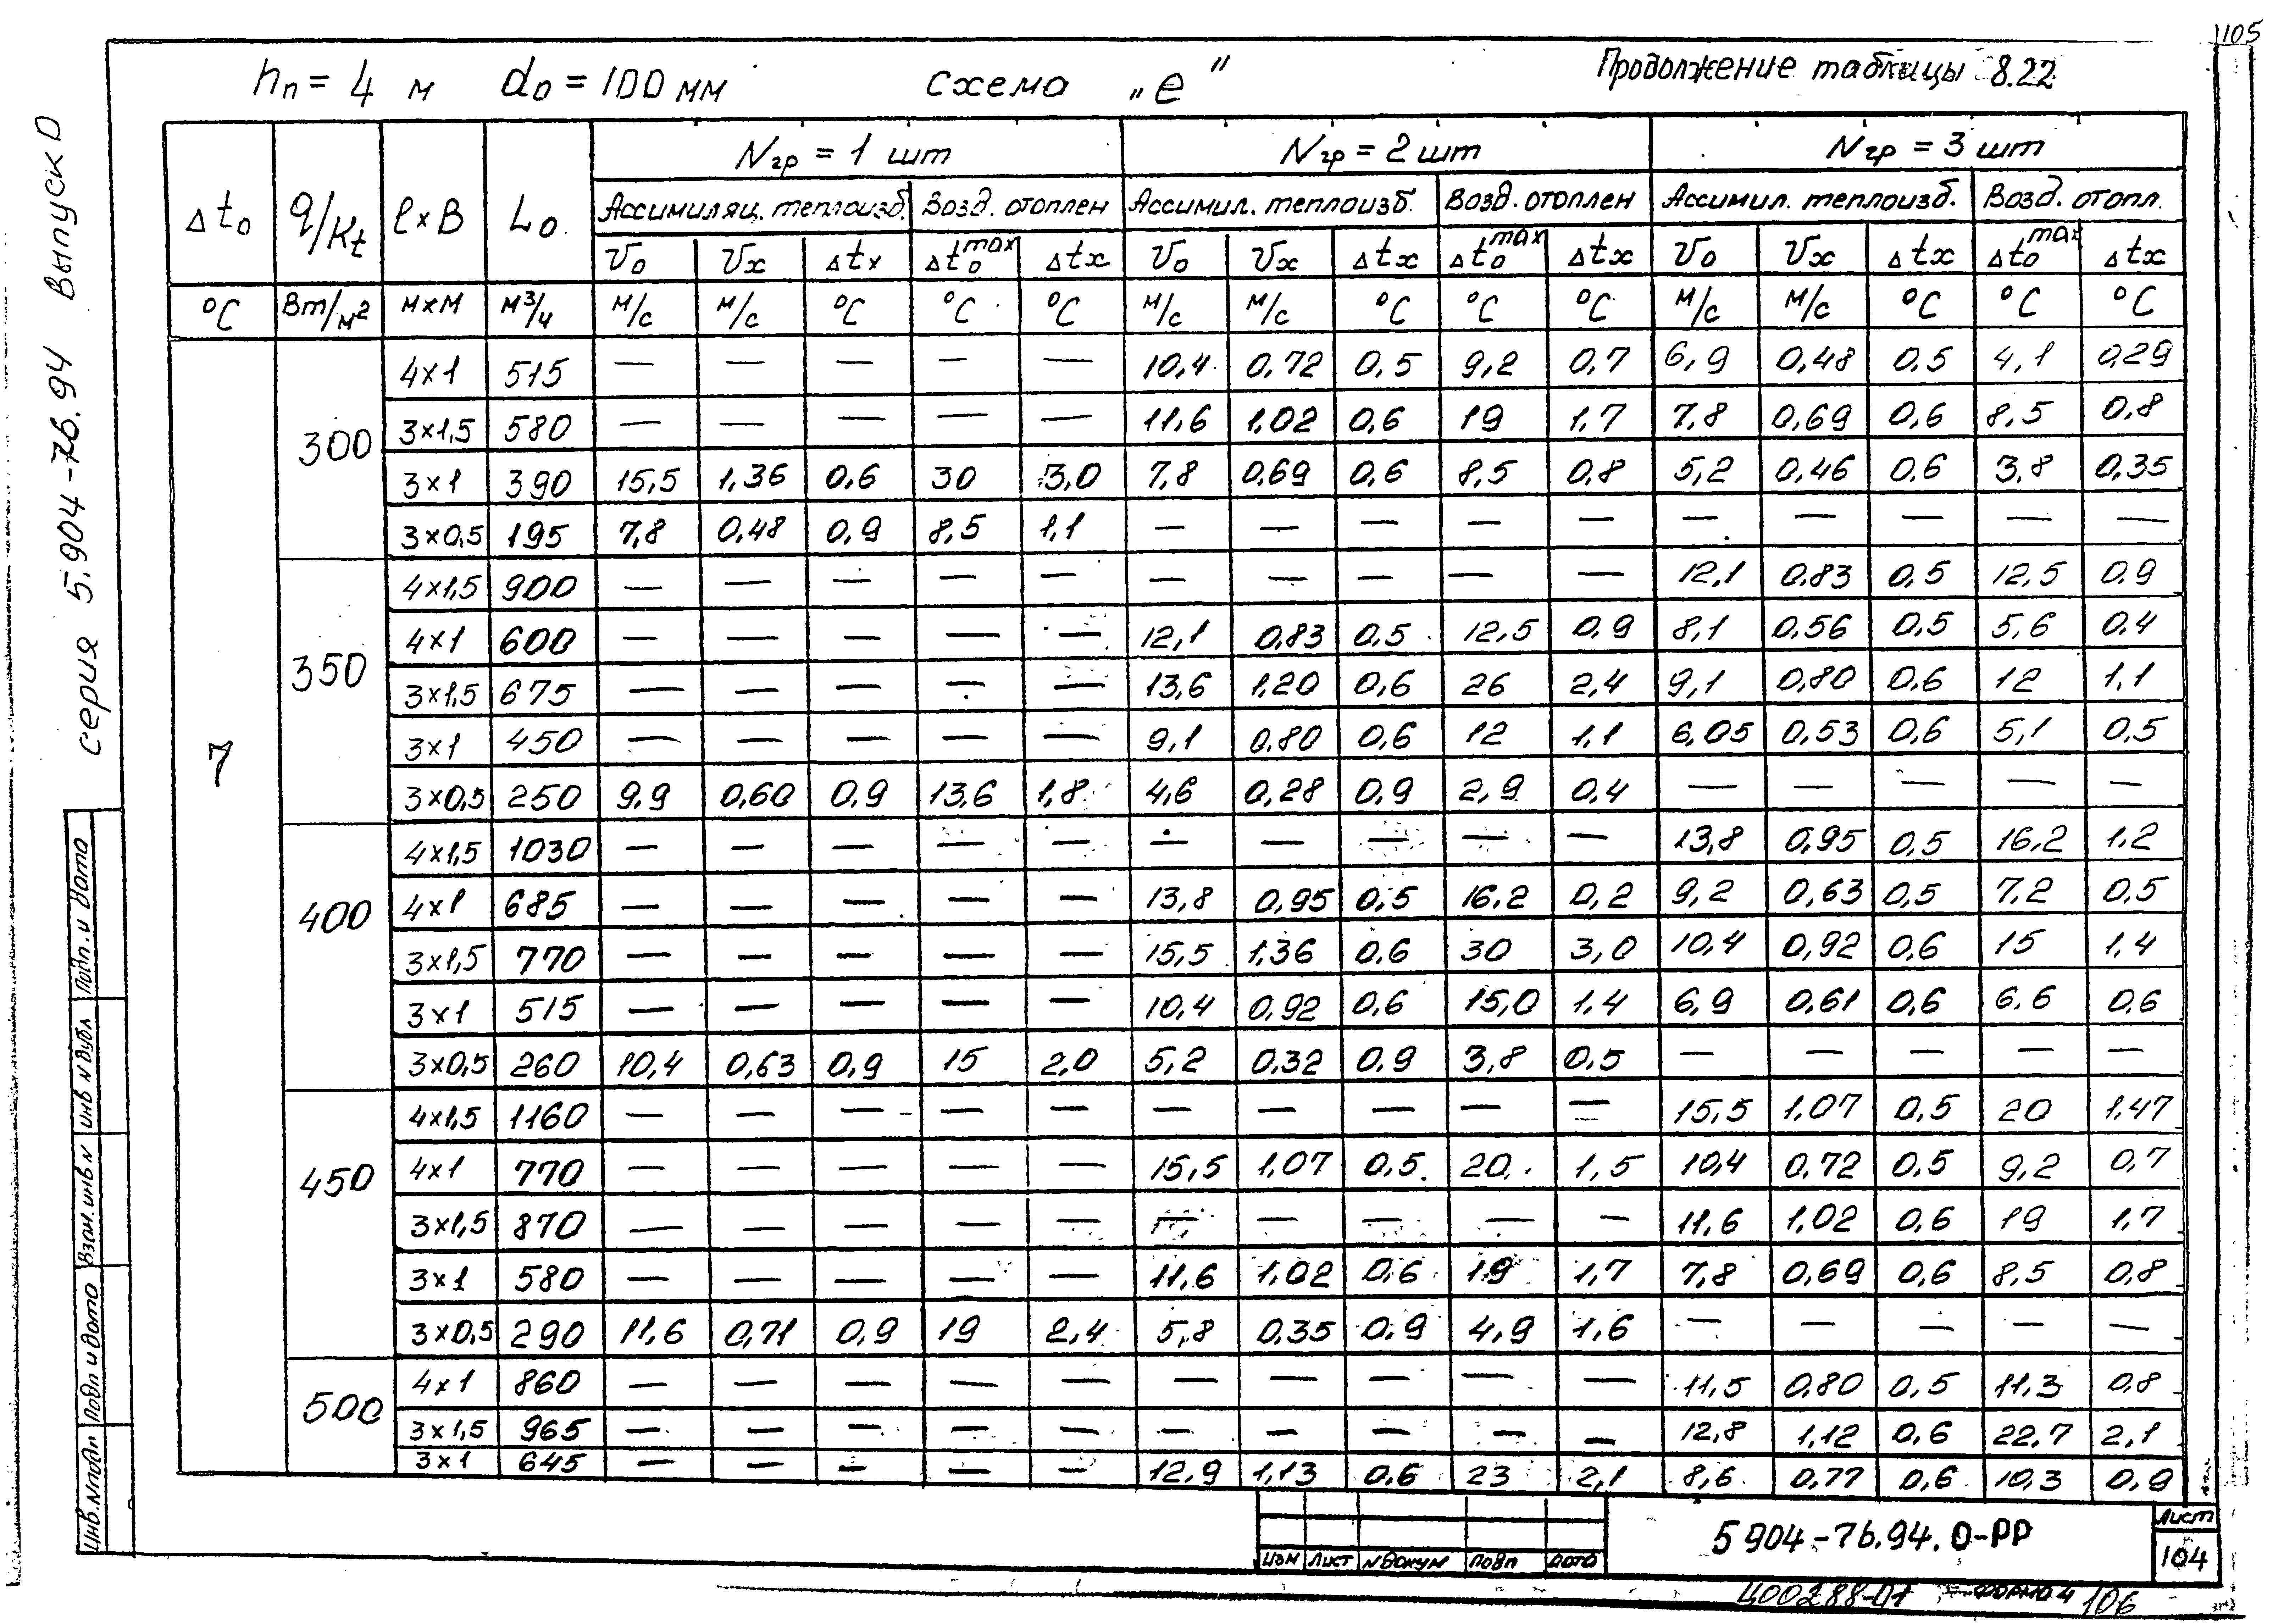 105
hп = 4 м d₀ = 100 мм схема „е" Продолжение таблицы 8.22
серия 5.904-76.94 Выпуск 0
Δt₀ q/Kt ℓ×B L₀ Nгр = 1 шт Nгр = 2 шт Nгр = 3 шт
Ассимиляц. теплоизб. Возд. отоплен Ассимил. теплоизб. Возд. отоплен Ассимил. теплоизб. Возд. отопл.
V₀ Vx Δtx Δt₀max Δtx V₀ Vx Δtx Δt₀max Δtx V₀ Vx Δtx Δt₀max Δtx
°C Вт/м² м×м м³/ч м/с м/с °C °C °C м/с м/с °C °C °C м/с м/с °C °C °C
7
300
4×1 515 — — — — — 10,4 0,72 0,5 9,2 0,7 6,9 0,48 0,5 4,1 0,29
3×1,5 580 — — — — — 11,6 1,02 0,6 19 1,7 7,8 0,69 0,6 8,5 0,8
3×1 390 15,5 1,36 0,6 30 3,0 7,8 0,69 0,6 8,5 0,8 5,2 0,46 0,6 3,8 0,35
3×0,5 195 7,8 0,48 0,9 8,5 1,1 — — — — — — — — — —
350
4×1,5 900 — — — — — — — — — — 12,1 0,83 0,5 12,5 0,9
4×1 600 — — — — — 12,1 0,83 0,5 12,5 0,9 8,1 0,56 0,5 5,6 0,4
3×1,5 675 — — — — — 13,6 1,20 0,6 26 2,4 9,1 0,80 0,6 12 1,1
3×1 450 — — — — — 9,1 0,80 0,6 12 1,1 6,05 0,53 0,6 5,1 0,5
3×0,5 250 9,9 0,60 0,9 13,6 1,8 4,6 0,28 0,9 2,9 0,4 — — — — —
400
4×1,5 1030 — — — — — — — — — — 13,8 0,95 0,5 16,2 1,2
4×1 685 — — — — — 13,8 0,95 0,5 16,2 0,2 9,2 0,63 0,5 7,2 0,5
3×1,5 770 — — — — — 15,5 1,36 0,6 30 3,0 10,4 0,92 0,6 15 1,4
3×1 515 — — — — — 10,4 0,92 0,6 15,0 1,4 6,9 0,61 0,6 6,6 0,6
3×0,5 260 10,4 0,63 0,9 15 2,0 5,2 0,32 0,9 3,8 0,5 — — — — —
450
4×1,5 1160 — — — — — — — — — — 15,5 1,07 0,5 20 1,47
4×1 770 — — — — — 15,5 1,07 0,5 20 1,5 10,4 0,72 0,5 9,2 0,7
3×1,5 870 — — — — — — — — — — 11,6 1,02 0,6 19 1,7
3×1 580 — — — — — 11,6 1,02 0,6 19 1,7 7,8 0,69 0,6 8,5 0,8
3×0,5 290 11,6 0,71 0,9 19 2,4 5,8 0,35 0,9 4,9 1,6 — — — — —
500
4×1 860 — — — — — — — — — — 11,5 0,80 0,5 11,3 0,8
3×1,5 965 — — — — — — — — — — 12,8 1,12 0,6 22,7 2,1
3×1 645 — — — — — 12,9 1,13 0,6 23 2,1 8,6 0,77 0,6 10,3 0,9
Подп. и дата
Инв N дубл
Взам. инв N
Подп и дата
Инв. N подп
Изм Лист N докум Подп Дата
5 904-76.94.0-РР
Лист
104
Ц00288-01 Форма 4 106